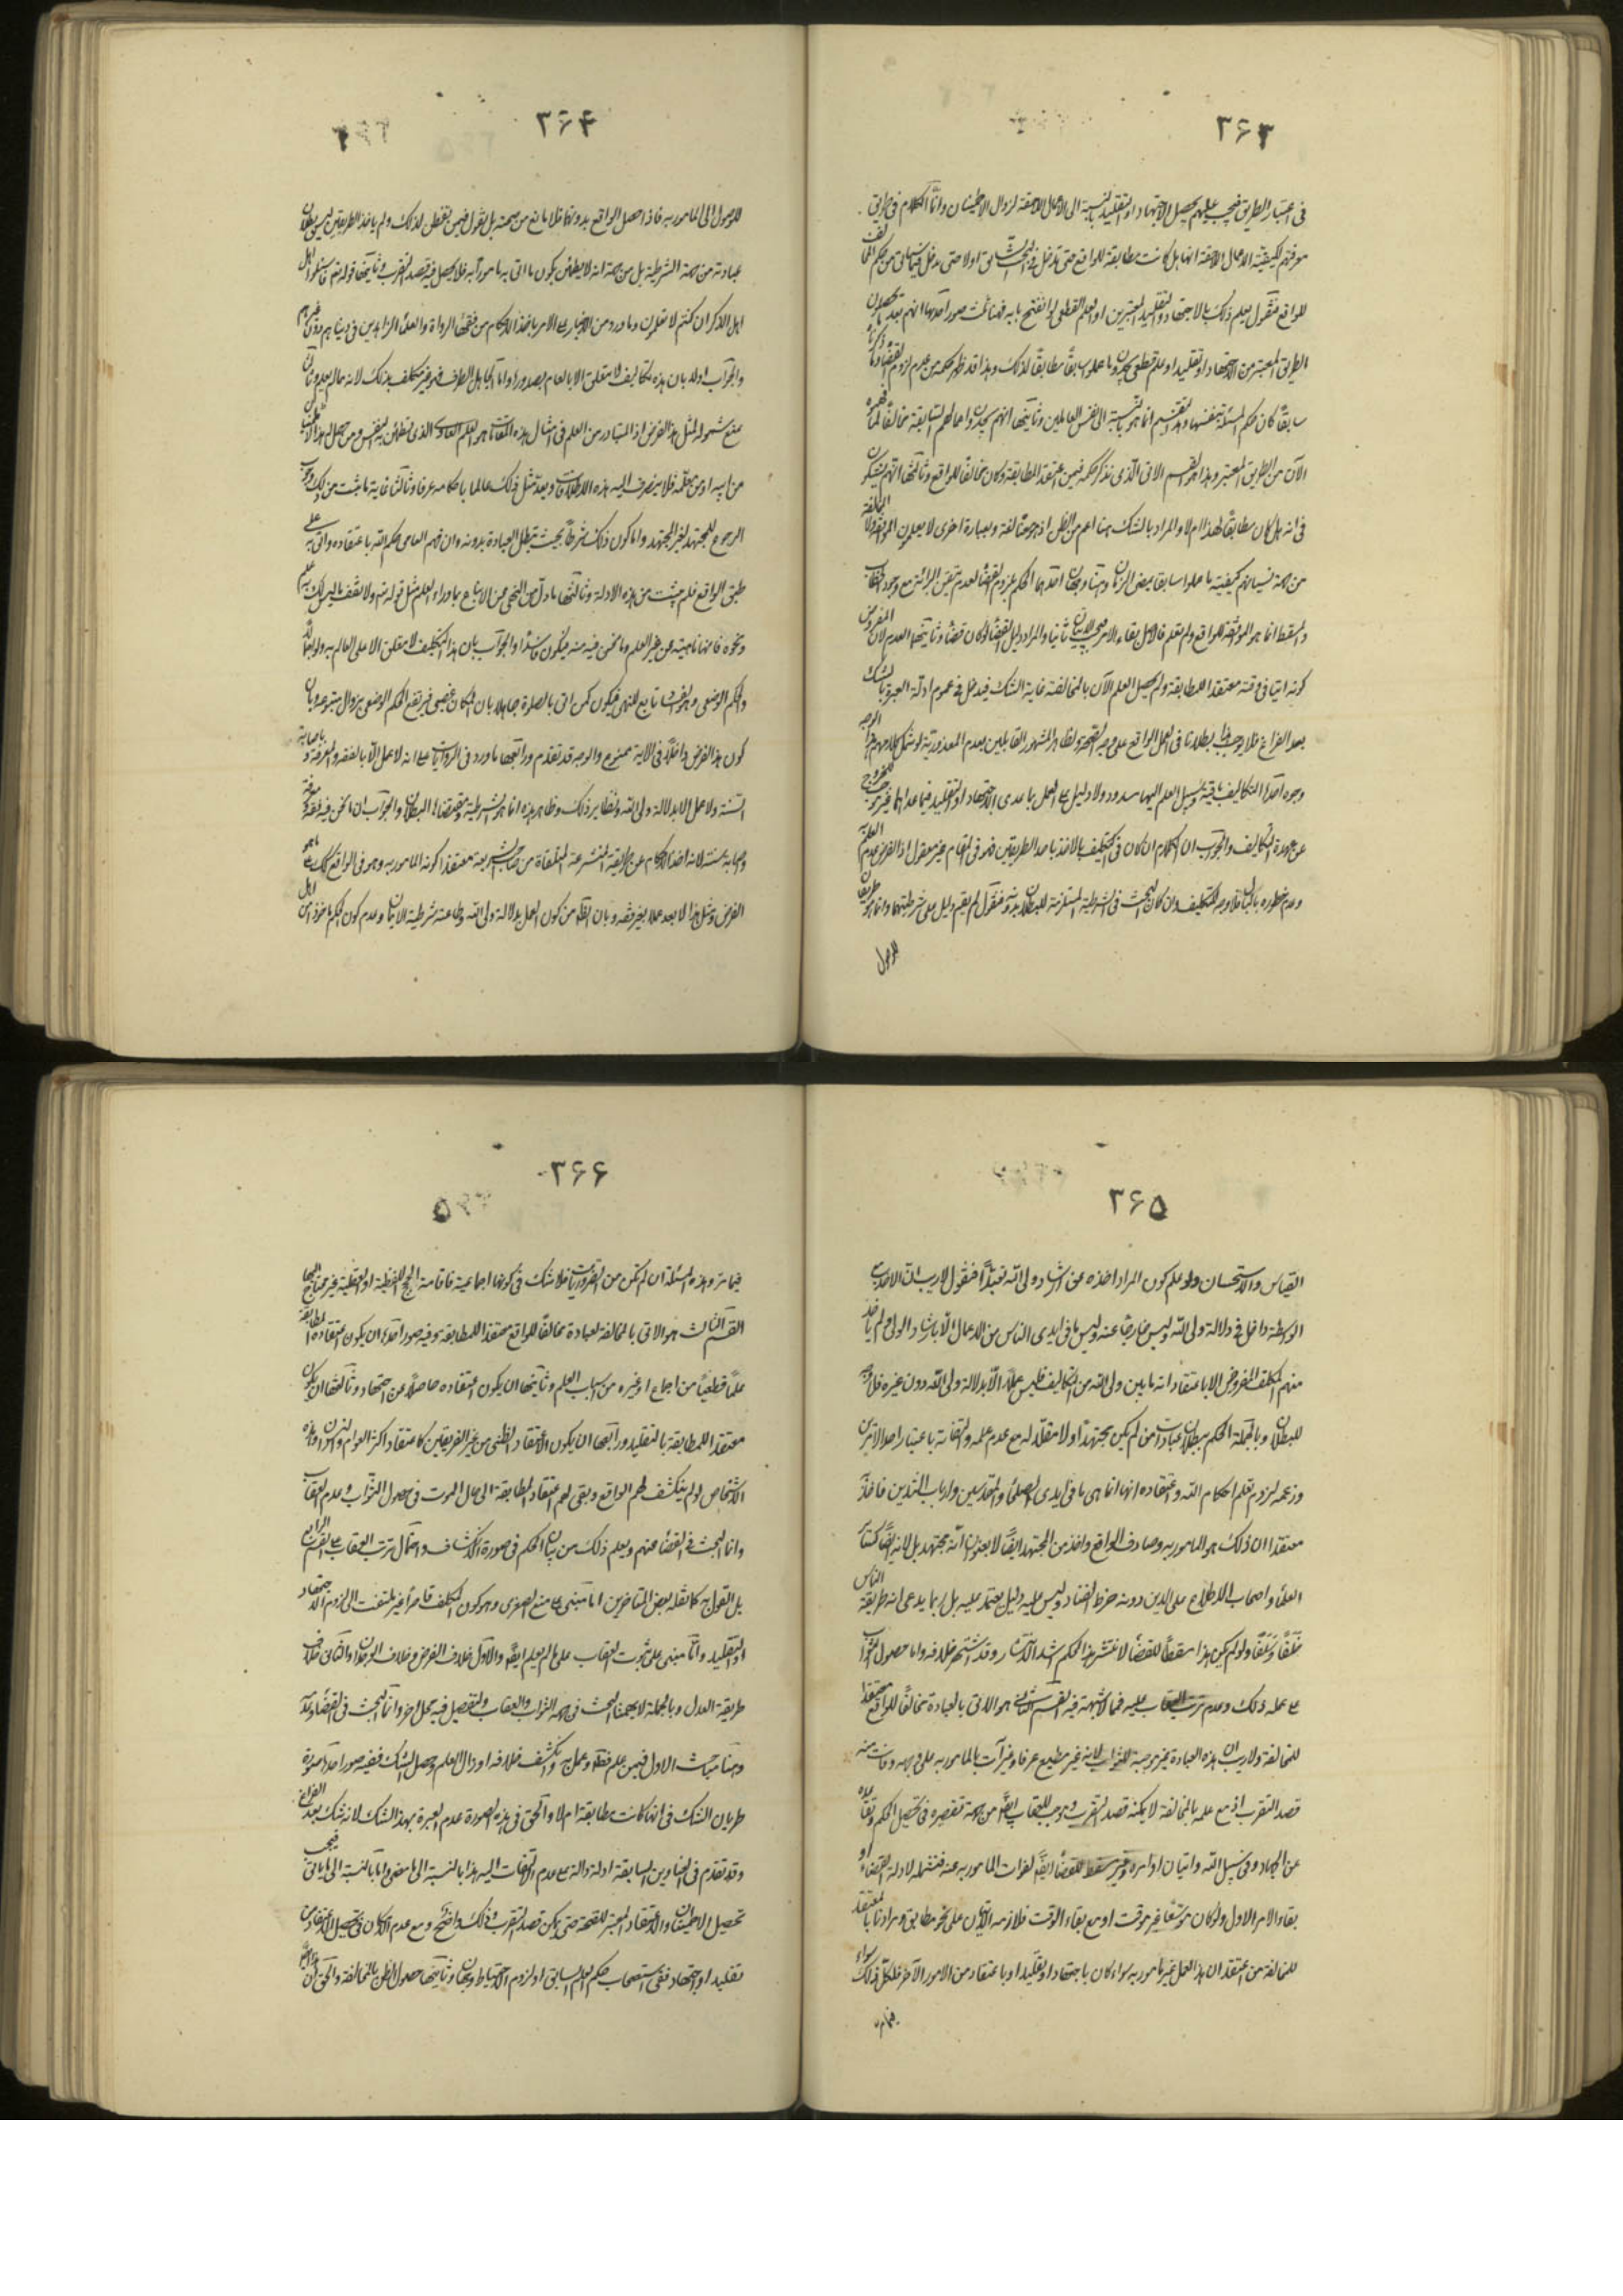 ٣۶٣
فى اعتبار الطريق فيجب عليهم تحصيل الاجتهاد او التقليد بالنسبة الى الاعمال اللاحقة لزوال الاطمينان وانما الكلام فى
معرفتهم لكيفية الاعمال اللاحقة انها هل كانت مطابقة للواقع حتى تدخل فى اولا حتى تدخل فيما
للواقع فنقول يعلم ذلك بالاجتهاد والتقليد المعتبرين او العلم القطعى لو انفتح بابه فهنا ثلث صور احدها انهم بعد
الطريق المعتبر من الاجتهاد او التقليد او علم قطعى يجدون ما عملوا سابقا مطابقا لذلك وهذا قد ظهر حكمه من عدم لزوم القضاء
سابقا كان حكم المسئلة بنفسها وهذا التقسيم انما هو بالنسبة الى نفس العاملين وثانيها انهم يجدون اعمالهم السابقة مخالفا لما
الآن من الطريق المعتبر وهذا هو القسم الاتى الذى نذكر حكمه فيمن اعتقد المطابقة وكان مخالفا للواقع وثالثها انهم يشكون
فى انه هل كان مطابقا لهذا ام لا والمراد بالشك هنا اعم من الظن وبعبارة اخرى لا يعلمون الموافقة ولا المخالفة
من جهة نسيانهم كيفية ما عملوا سابقا بمضى الزمان وهنا وجهان احدهما الحكم بلزوم القضاء لعدم تيقن البرائة مع وجود
والمسقط انما هو الموافقة للواقع ولم تعلم فالاصل بقاء الامر ثانيا والمراد دليل القضاء لو كان قضاء وثانيهما العدم لان المفروض
كونه اتيا فى وقته معتقدا للمطابقة ولم يحصل العلم الآن بالمخالفة غاية الشك فيدخل فى عموم ادلة العبرة بالشك
بعد الفراغ فلا يوجب بطلانا فى العمل الواقع على وجه الصحة ولظاهر المشهور القائلين بعدم المعذورية لو شمل كلامهم هذا الوجه
وجوه احدها التكاليف باقية وسبل العلم اليها مسدود ولا دليل على العمل بما عدى الاجتهاد او التقليد فيما عداها غير
عن عهدة التكاليف والجواب ان الكلام ان كان فى التكليف بالاخذ باحد الطريقين فهو فى المقام غير معقول اذ الفرض عدم العلم
وعدم خطوره بالبال فلا وجه للتكليف وان كان البحث فى الشرطية المستلزمة للبطلان بدونه فنقول لم يقم دليل على شرطيتهما وانما هو طريقان
للوصول
٣۶۴
للوصول الى المامور به فاذا حصل الواقع بدونها فلا مانع من صحته بل نقول فيمن تفطن لذلك ولم ياخذ الطريقين ليس بطلان
عبادته من جهة الشرطية بل من جهة انه لا يطمئن بكون ما اتى به مامورا به فلا يحصل فيه قصد التقرب وثانيها قوله تعالى فاسئلوا اهل
اهل الذكر ان كنتم لا تعلمون وما ورد من الاخبار على الامر باخذ الاحكام من فقهاء الرواة والعلماء الزاهدين فى دنياهم دون غيرهم
والجواب اولا بان هذه تكاليف لا متعلق الا بالعالم بصدورها واما الجاهل الصرف فهو غير مكلف بذلك لانه محال
بمنع شموله لمثل هذا الفرض اذ المتبادر من العلم فى امثال هذه المقامات هو العلم العادى الذى تطمئن به النفس ومن حصل
من ابيه او من معلمه فلا ينصرف اليه هذه الاطلاقات ويعد مثل ذلك عالما باحكامه عرفا وثالثا غاية ما ثبت من ذلك وجوب
الرجوع للمجتهد لغير المجتهد واما كون ذلك شرطا بحيث تبطل العبادة بدونه وان فهم العامى حكم الله باعتقاده واتى به على
طبق الواقع فلم يثبت من هذه الادلة وثالثها ما دل من النهى عن الاتباع بما وراء العلم مثل قوله تعالى ولا تقف ما ليس لك به علم
ونحوه فانها ناهية عن غير العلم وما نحن فيه منه فيكون فاسدا والجواب بان هذا التكليف لا متعلق الا على العالم به
والحكم الوضعى وهو الفساد تابع للنهى فيكون كمن اتى بالصلوة جاهلا بان المكان غصبى فيرتفع الحكم الوضعى بزوال متبوعه وبان
كون هذا الفرض داخلا فى الاية ممنوع والوجه قد تقدم ورابعها ما ورد فى الروايات على انه لا عمل الا بالفقه والمعرفة و باصابة
السنة ولا عمل الا بدلالة ولى الله ونظاير ذلك وظاهر هذه انما هو الشرطية ومقتضاها البطلان والجواب ان ما نحن فيه فقه ومعرفة
واصابة سنة لانه اخذ الاحكام عن طريقة المتشرعة المتلقاة من صاحب الشريعة معتقدا كونه المامور به وهو فى الواقع كك على ما هو
الفرض ومثل هذا لا يعد عملا بغير فقه وبان الظاهر من كون العمل بدلالة ولى الله واطاعته شرطية الاتيان وعدم كون الحكم ماخوذا من اهل
٣۶۵
القياس والاستحسان ولو علم كون المراد اخذه عن ارشاد ولى الله تعبدا فنقول لا ريب ان الاخذ
الوسطة داخل فى دلالة ولى الله وليس خارجا عنه وليس ما فى ايدى الناس من الاعمال الا بارشاد الولى ولم ياخذ
منهم المكلف المفروض الا باعتقاد انه ما بين ولى الله من التكاليف فليس عملا الا بدلالة ولى الله دون غيره فلا وجه
للبطلان وبالجملة الحكم ببطلان عبادات من لم يكن مجتهدا ولا مقلدا له مع عدم علمه والتفاته باعتبار احد الامرين
وزعمه لزوم تعلم احكام الله واعتقاده انها انما هى ما فى ايدى الصلحاء والمقدسين وارباب التدين فاخذه
معتقدا ان ذلك هو المامور به وصادف الواقع واخذ من المجتهد ايضا لا بعنوان انه مجتهد بل لانه ايضا كسائر
العلماء واصحاب الاطلاع على الدين دونه خرط القتاد وليس عليه دليل يعتمد عليه بل ربما يدعى انه طريقة الناس
خلفا وسلفا ولو لم يكن هذا مسقطا للقضاء لانتشر هذا الحكم اشد الانتشار وقد اشتهر خلافه واما حصول الثواب
على عمله ذلك وعدم ترتب العقاب عليه فما لا شبهة فيه القسم الثانى هو الاتى بالعبادة مخالفا للواقع معتقدا
للمخالفة ولا ريب ان هذه العبادة غير موجبة للثواب لانه غير مطيع عرفا وغير آت بالمامور به على وجهه وفائت منه
قصد التقرب اذ مع علمه بالمخالفة لا يمكنه قصد التقرب وموجب للعقاب ايضا من جهة تقصيره فى تحصيل الحكم وتقاعده
عن الجهاد فى سبيل الله واتيان اوامره وغير مسقط للقضاء ايضا لفوات المامور به عنه فتشمله ادلة القضاء او
بقاء الامر الاول ولو كان موسعا غير موقت او مع بقاء الوقت فلازمه الاتيان على نحو مطابق ومرادنا بالمعتقد
للمخالفة من اعتقد ان هذا العمل غير مامور به سواء كان باجتهاد او تقليد او باعتقاد من الامور الآخر فلكل ذلك سواء
فيما مر
٣۶۶
فيما مر وهذه المسئلة ان لم تكن من الضروريات فلا شك فى كونها اجماعية فاقامة الحجج اللفظية او العقلية غير محتاج اليها
القسم الثالث هو الاتى بالمخالفة لعبادة مخالفا للواقع معتقدا للمطابقة وفيه صور احدها ان يكون اعتقاده المطابقة
علما قطعيا من اجماع او غيره من اسباب العلم وثانيها ان يكون اعتقاده حاصلا عن اجتهاد وثالثها ان يكون
معتقدا للمطابقة بالتقليد ورابعها ان يكون الاعتقاد الظنى من غير الفريقين كاعتقاد اكثر العوام والنسوان وهذه
الاشخاص لو لم ينكشف لهم الواقع وبقى لهم اعتقاد المطابقة الى حال الموت فى حصول الثواب وعدم العقاب
وانما البحث فى القضاء عنهم ويعلم ذلك من بيان الحكم فى صورة الانكشاف واحتمال ترتب العقاب على القسم الرابع
بل القول به كما نقله بعض المتاخرين اما مبنى على منع الصغرى وهو كون المكلف قاصرا غير ملتفت الى لزوم الاجتهاد
او التقليد واما مبنى على ثبوت العقاب على ما لم يعلم ايضا والاول خلاف الفرض وخلاف الوجدان والثانى خلاف
طريقة العدل وبالجملة لا يهمنا البحث فى جهة الثواب والعقاب والتفصيل فيه محل اخر وانما البحث فى القضاء وعدمه
وهنا مباحث الاول فيمن علم فقطع وعمل به وانكشف خلافه او زال العلم وحصل الشك ففيه صور احدها صورة
طريان الشك فى انها كانت مطابقة ام لا والحق فى هذه الصورة عدم العبرة بهذا الشك لانه شك بعد الفراغ
وقد تقدم فى العناوين السابقة ادلة دالة على عدم الالتفات اليه هذا بالنسبة الى ما مضى واما بالنسبة الى ما ياتى فيجب
تحصيل الاطمينان والاعتقاد المعتبر للصحة حتى يمكن قصد التقرب وذلك واضح ومع عدم الامكان فى تحصيل الاعتقاد من
تقليد او اجتهاد ففى استصحاب حكم العلم السابق او لزوم الاحتياط وجهان وثانيها حصول الظن بالمخالفة والحق